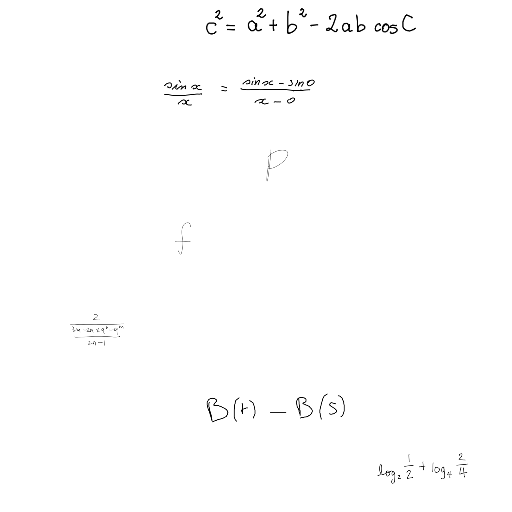 c² = a² + b² - 2ab cos C
sin x / x = (sin x - sin 0) / (x - 0)
p
f
B(t) - B(s)
log₂ 1/2 + log₄ 2/4